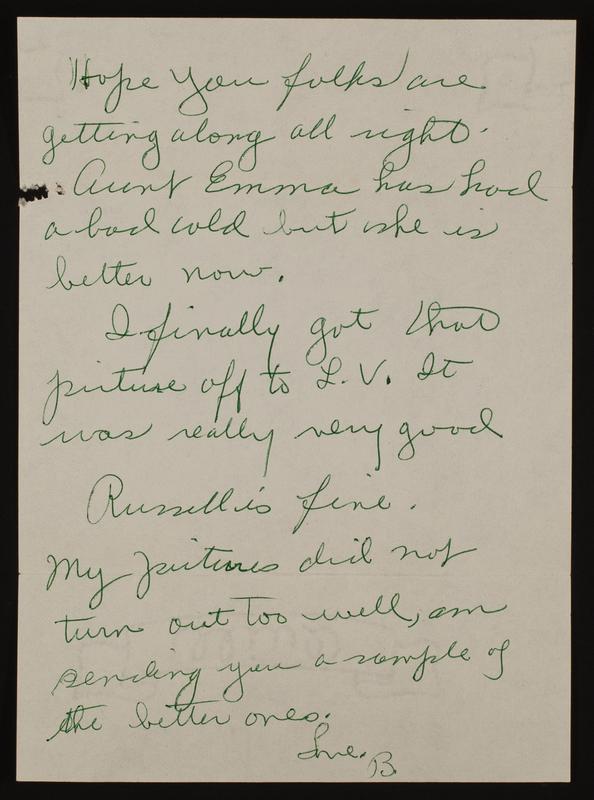 Hope you folks are
getting along all right.
Aunt Emma has had
a bad cold but she is
better now.
I finally got that
picture off to L.V. It
was really very good
Russell is fine.
My pictures did not
turn out too well, am
sending you a sample of
the better ones.
Love.
B.